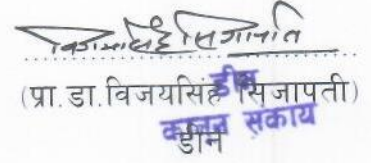 (प्रा.डा.विजयसिंह सिजापती)
डीन
डीन
कानून संकाय